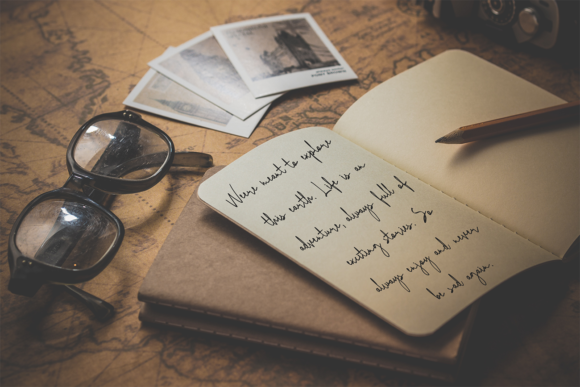 We're meant to explore
this earth. Life is an
adventure, always full of
exciting stories. So
always enjoy and never
be sad again.